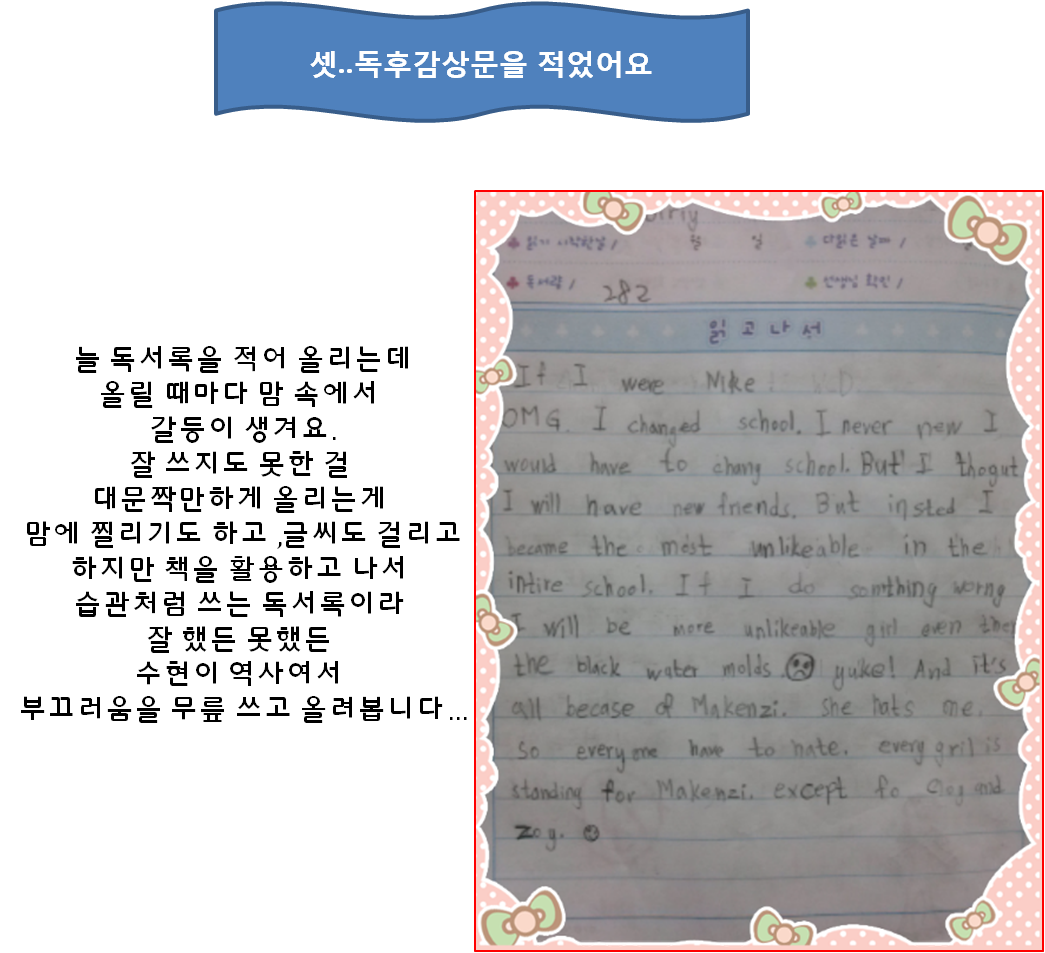 셋..독후감상문을 적었어요
늘 독서록을 적어 올리는데
올릴 때마다 맘 속에서
갈등이 생겨요.
잘 쓰지도 못한 걸
대문짝만하게 올리는게
맘에 찔리기도 하고 ,글씨도 걸리고
하지만 책을 활용하고 나서
습관처럼 쓰는 독서록이라
잘 했든 못했든
수현이 역사여서
부끄러움을 무릎 쓰고 올려봅니다...
읽기 시작한날 / 월 일 다읽은 날짜 /
독서량 / 282 선생님 확인 /
읽고나서
If I were Nike
OMG. I changed school. I never new I
would have to chang school. But I thogut
I will have new friends. But insted I
became the most unlikeable in the
intire school. If I do somthing worng
I will be more unlikeable girl even then
the black water molds. yuke! And it's
all becase of Makenzi. She hats me.
so everyone have to hate. every gril is
standing for Makenzi. except fo and
Zoy.